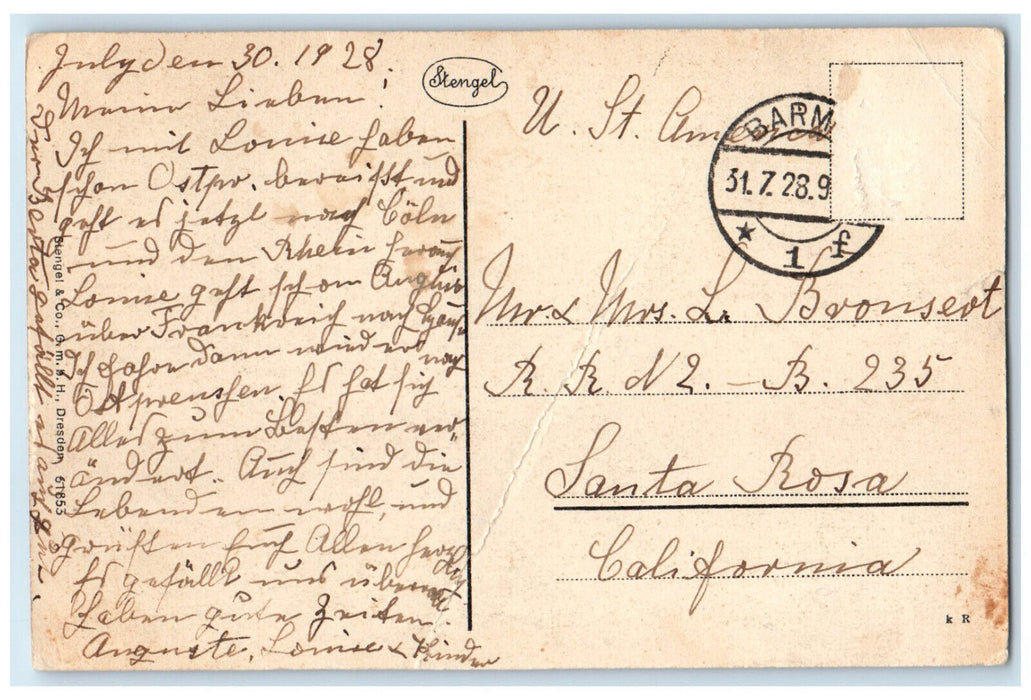 July den 30. 1928.
Meine Lieben!
Ich mit Louise haben
schon Ostpr. bereisst und
geht es jetzt nach Cöln
und den Rhein herauf
Louise geht schon August
über Frankreich nach Hause
Ich fahre dann wieder nach
Ostpreussen. Es hat sich
Alles zum Besten ver=
ändert. Auch sind die
Lebenden wohl, und
grüssen Euch Allen herz
Es gefällt uns überall
haben gute Zeiten.
Auguste, Louise & Kinder
Stengel & Co., G.m.b.H., Dresden 61853
Stengel
U. St. America
BARM
31.7.28.9
1 f
Mr. & Mrs. L. Bronsert
R. R. N 2. – B. 235
Santa Rosa
California
k R